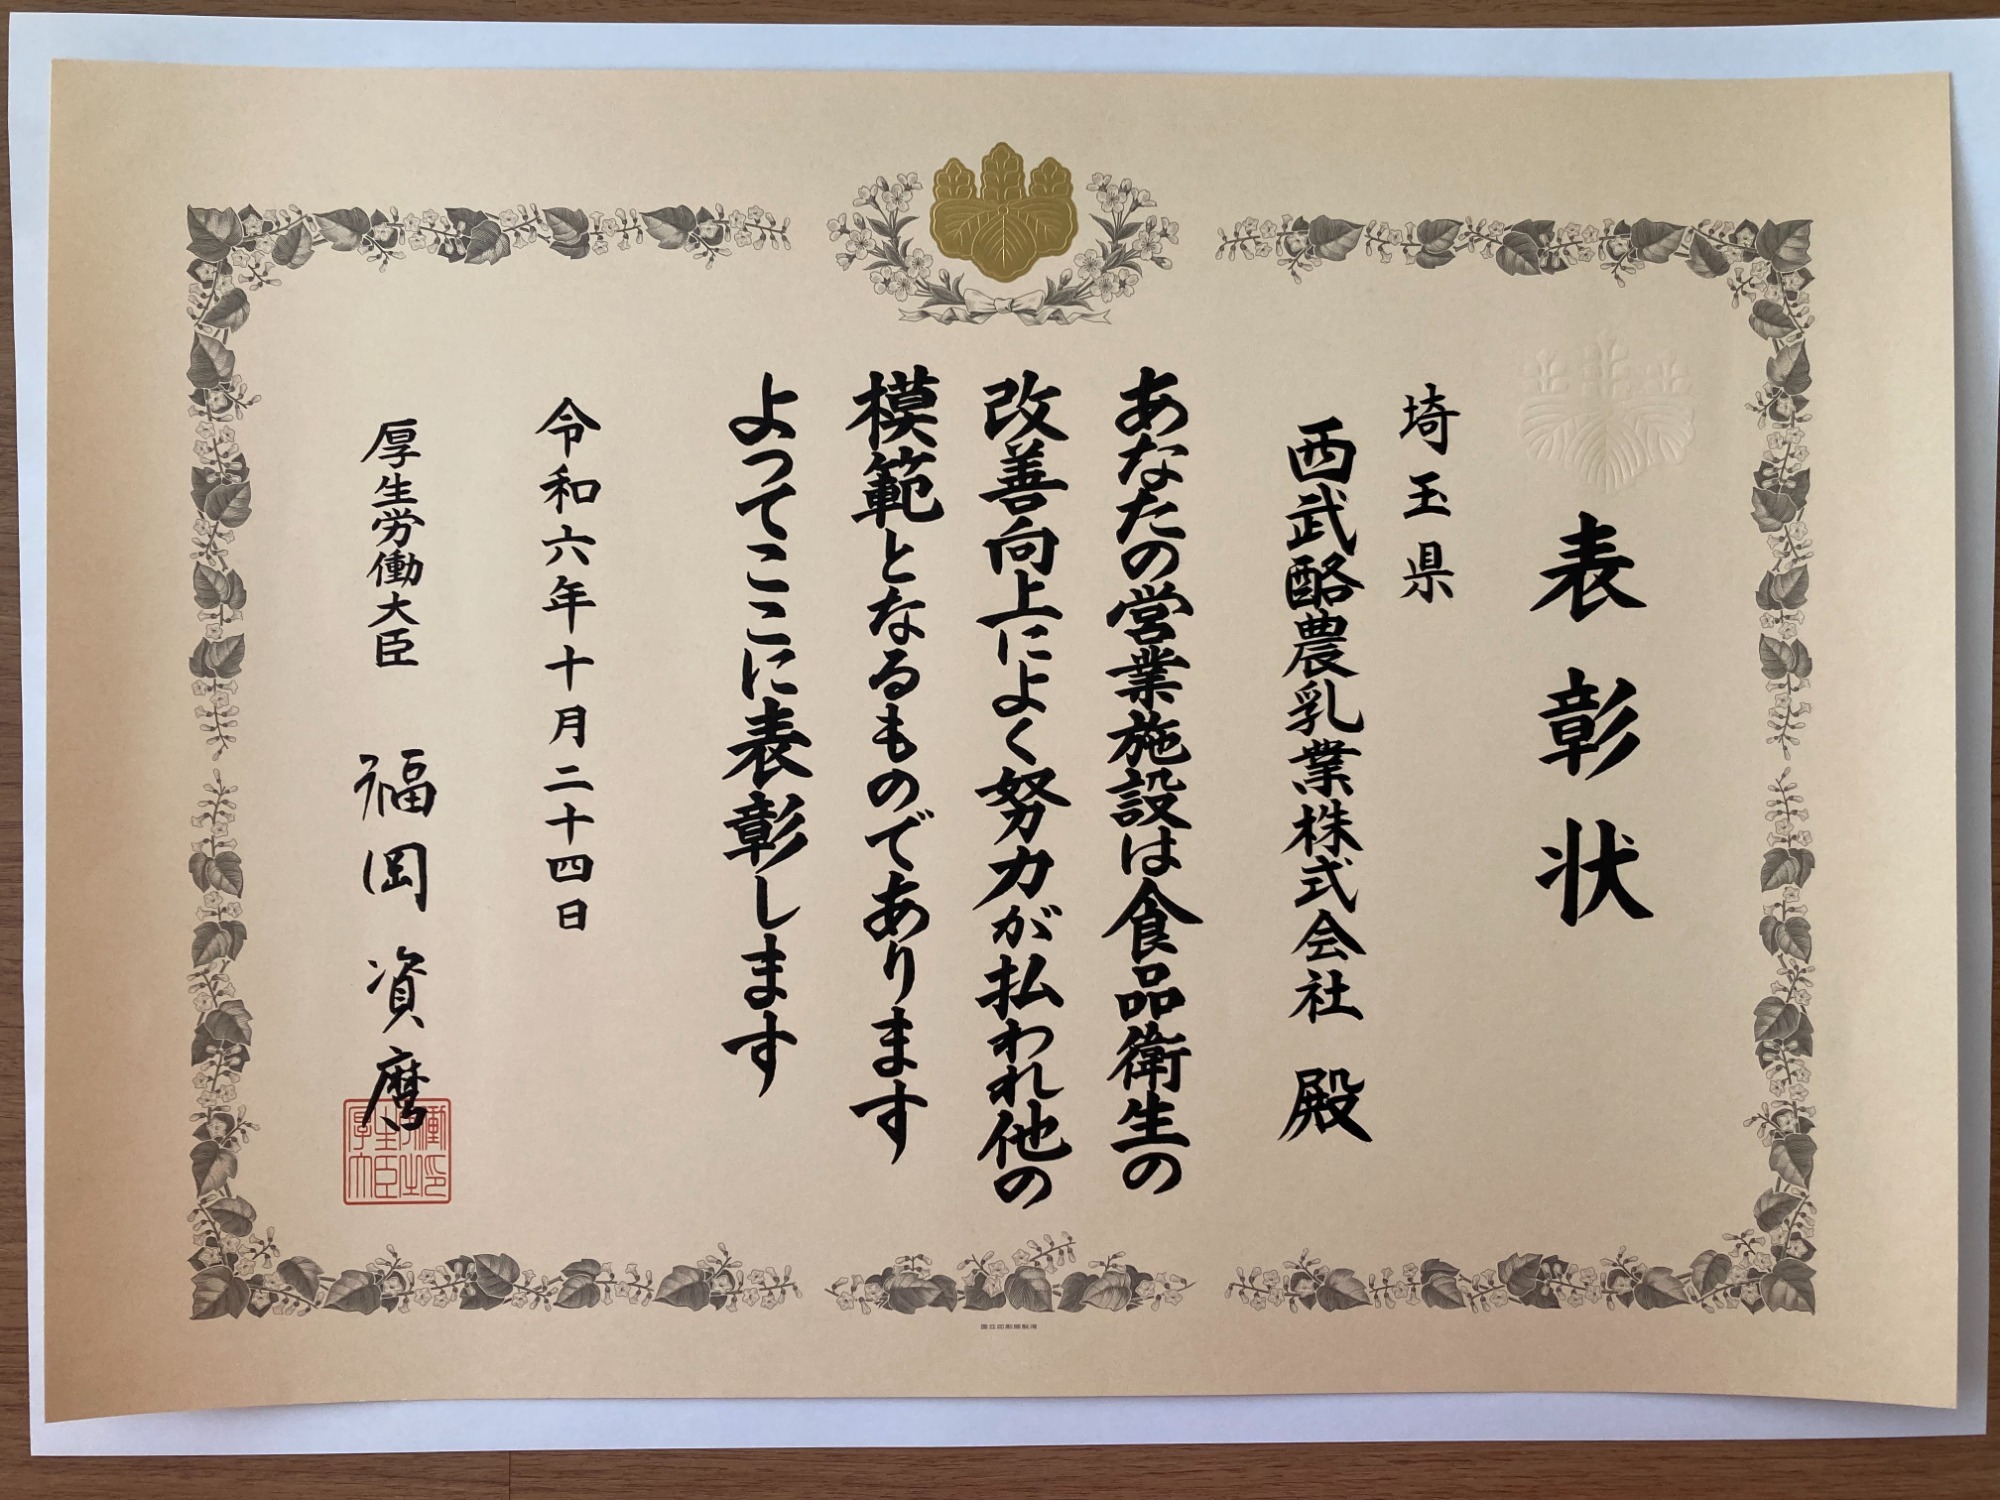 表彰状
埼玉県
西武酪農乳業株式会社 殿
あなたの営業施設は食品衛生の
改善向上によく努力が払われ他の
模範となるものであります
よってここに表彰します
令和六年十月二十四日
厚生労働大臣 福岡資麿